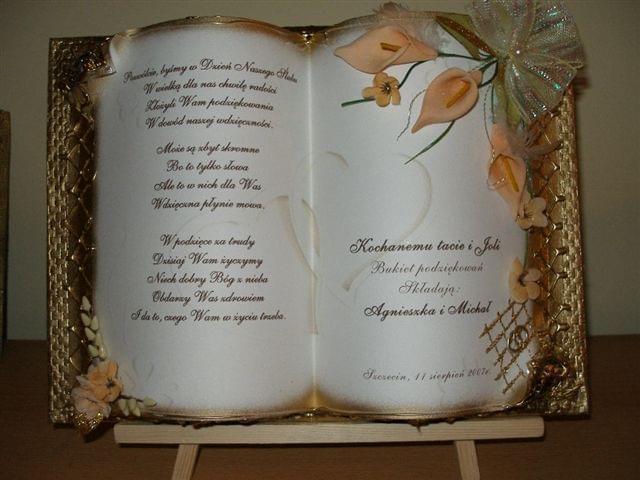 Pozwólcie, byśmy w Dzień Naszego Ślubu
W wielką dla nas chwilę radości
Złożyli Wam podziękowania
W dowód naszej wdzięczności.
Może są zbyt skromne
Bo to tylko słowa
Ale to w nich dla Was
Wdzięczna płynie mowa.
W podzięce za trudy
Dzisiaj Wam życzymy
Niech dobry Bóg z nieba
Obdarzy Was zdrowiem
I da to, czego Wam w życiu trzeba.
Kochanemu tacie i Joli
Bukiet podziękowań
Składają:
Agnieszka i Michał
Szczecin, 11 sierpień 2007r.